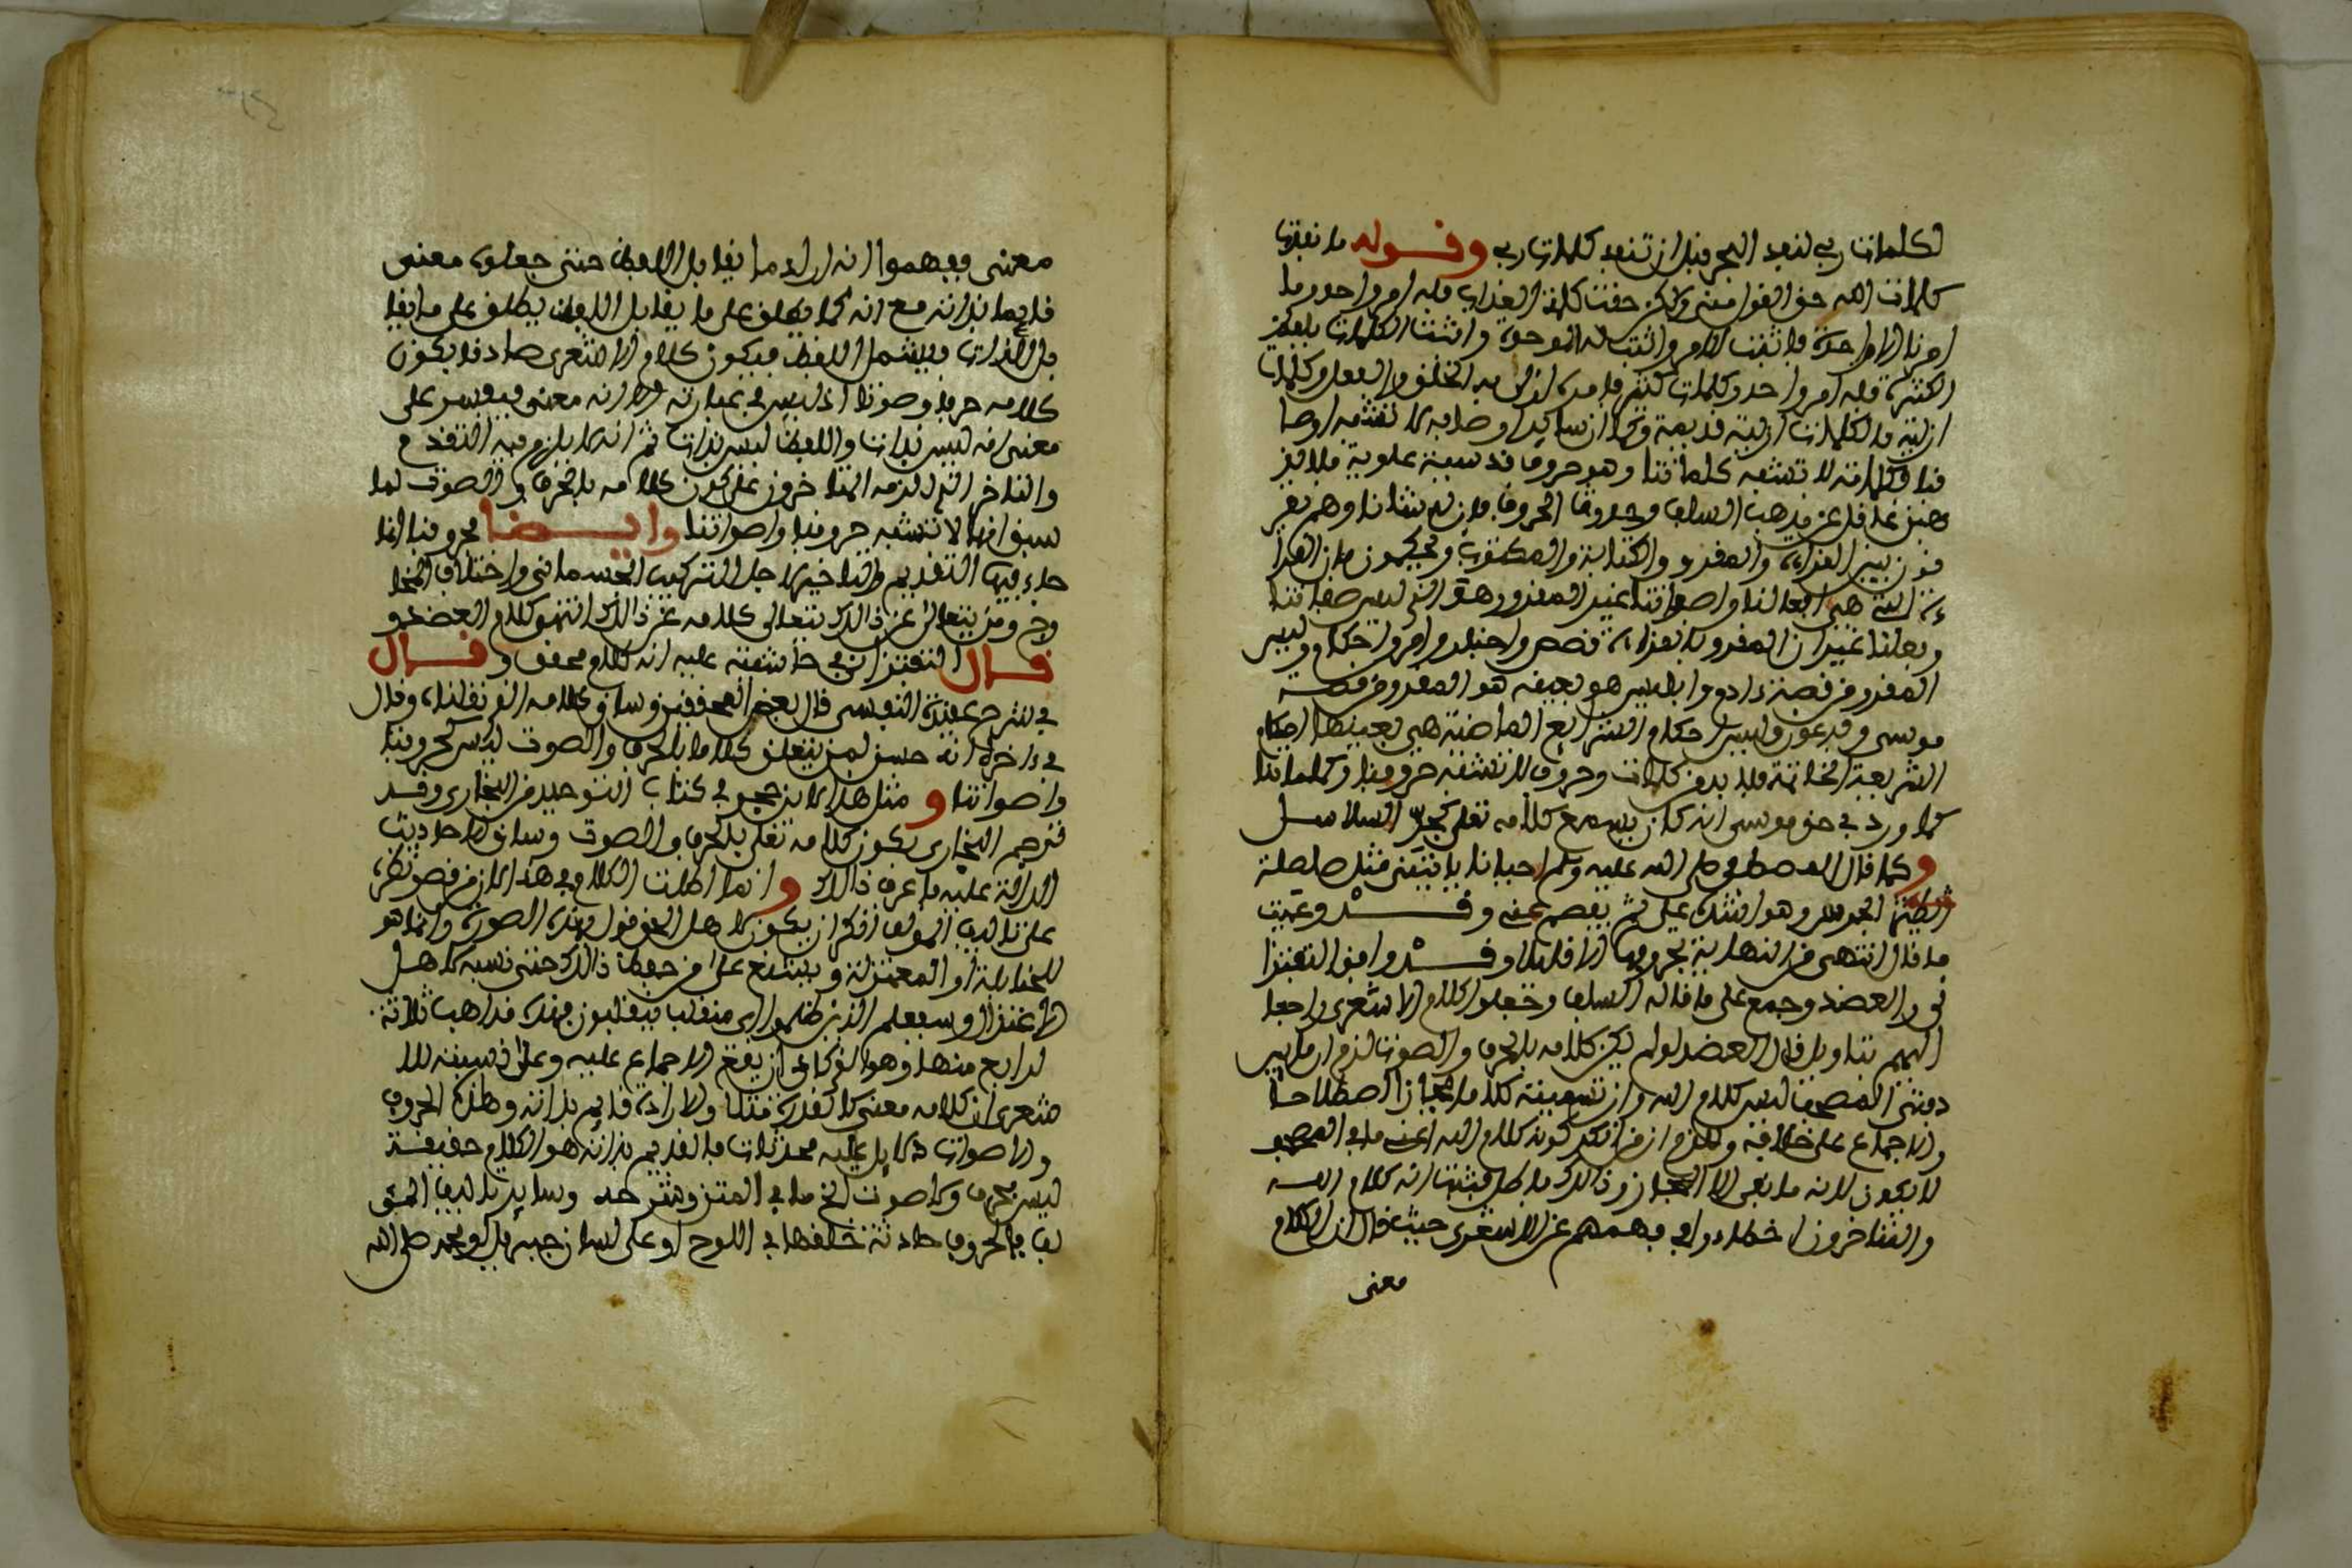 لكلمات ربي لنفد البحر قبل ان تنفد كلمات ربي وقوله ما نفدت
كلمات الله حق القول مني ولكن حقت كلمة العذاب فله امر واحد وما
امرنا الا واحدة فاثبت الامر واثبت له الوحدة واثبت الكلمات بلفظ
الكثرة فله امر واحد وكلمات كثيرة الخلق والفعل وكلمات
ازلية فالكلمات ازلية قديمة وكلا وصافه لا تشبه اوصا
فنا وكلماته لا تشبه كلماتنا وهو حروف قدسية علوية
عن مذهب السلف وحدوث الحروف فان وهم يفر
قون بين القراءة والمقرو والكتابة والمكتوب ويحكمون بان القرا
ءة التي هي افعالنا واصواتنا غير المقرو هو الذي ليس صفاتنا
وفعلنا غير ان المقرو بالقراءة قصص واخبار وامر واحكام وليس
المقرو من قصة ءادم وابليس هو بعينه هو المقرو من قصة
موسى وفرعون وليس احكام الشرائع الماضية هي بعينها احكام
الشريعة الخاتمة فلا بد من كلمات وحروف لا تشبه حروفنا وكلماتنا
كما ورد في حق موسى انه كان يسمع كلامه تعلى كجر السلاسل
وكما قال المصطفى صلى الله عليه وسلم احيانا ياتيني مثل صلصلة
الجرس وهو اشده علي ثم يفصم عني وقد وعيت
ما قال انتهى من النهاية بحروفها الا قليلا وقد وافق التفتزا
ني والعضد وجمع على ما قاله السلف وجعلوا كلام الاشعري راجعا
اليهم بتاويل قال العضد لو لم يكن كلامه بالحرف والصوت لزم ان ما بين
دفتي المصحف ليس كلام الله وان تسميته كلاما مجازا اصطلاحا
والاجماع على خلافه ولزم ان من انكر كونه كلام الله اعني ما في المصحف
لا يكفر لانه ما نفى الا المجاز وذالك باطل فثبت انه كلام الله
والمتاخرون اخطاءوا في فهمهم عن الاشعري حيث قال ان الكلام
معنى
معنى ففهموا انه اراد ما يقابل اللفظ حتى جعلوه معنى
قايما بذاته مع انه كما يطلق على ما يقابل اللفظ يطلق على ما يقا
بل الذات فيشمل اللفظ فيكون كلام الاشعري صادقا بكون
كلامه حرفا وصوتا اذ ليس في عبارته الا انه معنى فيفسر على
معنى انه ليس بذات واللفظ ليس بذات ثم انه لا يلزم فيه التقدم
والتاخر الذي الزمه المتاخرون على كون كلامه بالحرف والصوت لما
سبق انها لا تشبه حروفنا واصواتنا وايضا حروفنا انما
جاء فيها التقديم والتاخير لاجل التركيب الجسماني واختلاف المخا
رج ومن يتعالى عن ذالك يتعالى كلامه عن ذالك انتهى كلام العضد و
قال التفتزاني في حاشيته عليه انه كلام محقق وقال
في شرح عقيدة النفسي قال بعض المحققين وساق كلامه الذي نقلناه وقال
في ءاخره انه حسن لمن يتعقل كلاما بالحرف والصوت ليس كحروفنا
واصواتنا و مثل هذا لابن حجر في كتاب التوحيد من البخاري وقد
ترجم البخاري بكون كلامه تعلى بالحرف والصوت وساق الاحاديث
الدالة عليه ما عرف ذالك و انما اطلت الكلام في هذا لان من قصر نظره
على تاليف المؤلف انكر ان يكون لاهل الحق قول بهذه الصورة وانما هو
للحنابلة او المعتزلة ويشنع على من حفظ ذالك حتى نسبه لاهل
الاعتزال وسيعلم الذين ظلموا اي منقلب ينقلبون فهذه مذاهب ثلاثة
لرابع منها وهو الذي كاد ان يقع الاجماع عليه وعلى نسبته للا
شعري ان كلامه معنى كالقدرة مثلا والارادة قايم بذاته وهذه الحروف
والاصوات دلايل عليه محدثات فالقديم بذاته هو الكلام حقيقة
ليس بحرف ولا صوت الخ ما في المتن وشرحه وساير تاليف المؤ
لف فالحروف حادثة خلقها في اللوح او على لسان جبريل او محمد صلى الله